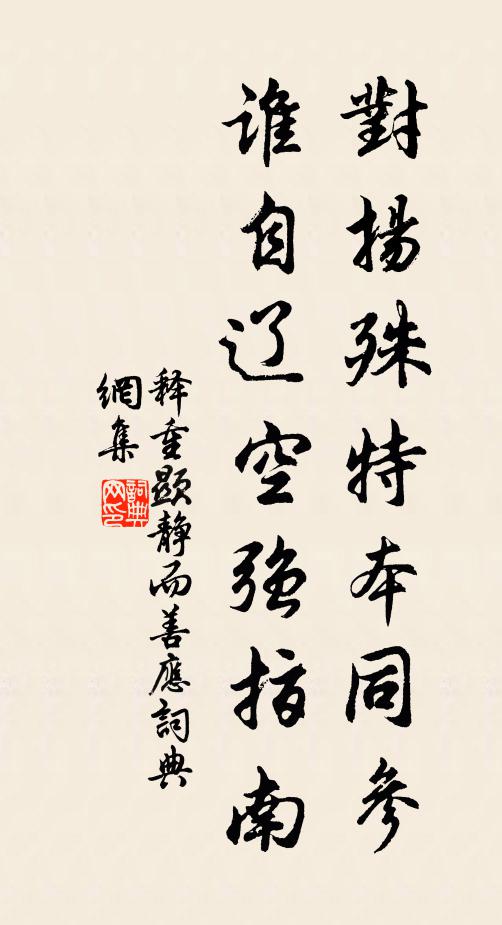 對揚殊特本同參
誰自辽空強指南
释重顯静而善應詞典
網集
詞典
网印